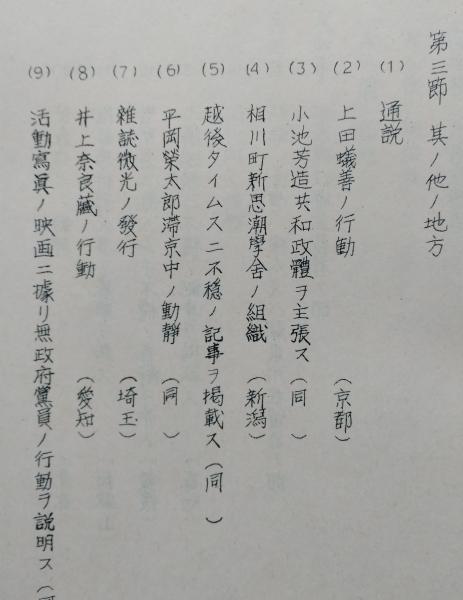 第三節 其ノ他ノ地方
(1) 通説
(2) 上田蟻善ノ行動 (京都)
(3) 小池芳造共和政體ヲ主張ス (同 )
(4) 相川町新思潮學舍ノ組織 (新潟)
(5) 越後タイムスニ不穏ノ記事ヲ掲載ス (同 )
(6) 平岡榮太郎滞京中ノ動靜 (同 )
(7) 雜誌微光ノ發行 (埼玉)
(8) 井上奈良藏ノ行動 (愛知)
(9) 活動寫眞ノ映画ニ據リ無政府黨員ノ行動ヲ説明ス (